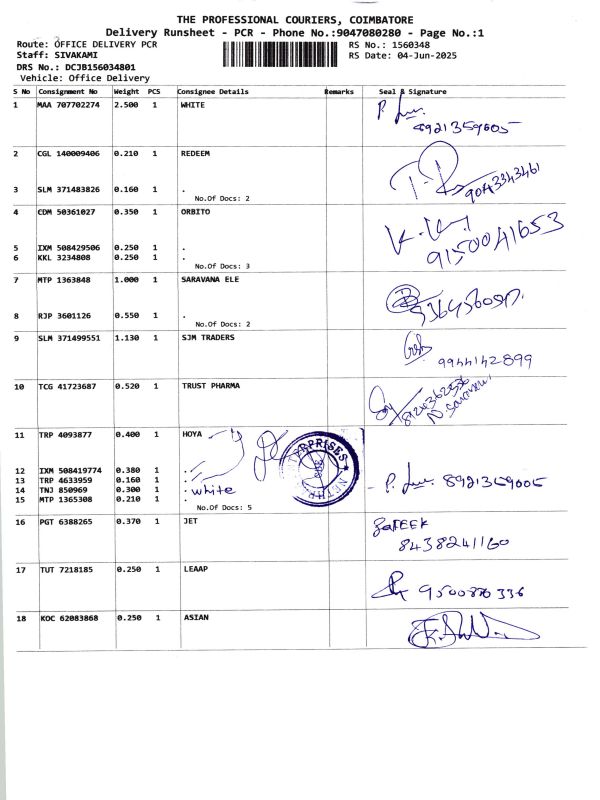 THE PROFESSIONAL COURIERS, COIMBATORE
Delivery Runsheet - PCR - Phone No.:9047080280 - Page No.:1
Route: OFFICE DELIVERY PCR RS No.: 1560348
Staff: SIVAKAMI RS Date: 04-Jun-2025
DRS No.: DCJB156034801
Vehicle: Office Delivery
S No Consignment No Weight PCS Consignee Details Remarks Seal & Signature
1 MAA 707702274 2.500 1 WHITE
8921359605
2 CGL 140009406 0.210 1 REDEEM
9043343461
3 SLM 371483826 0.160 1 .
No.Of Docs: 2
4 CDM 50361027 0.350 1 ORBITO
9150041653
5 IXM 508429506 0.250 1 .
6 KKL 3234808 0.250 1 .
No.Of Docs: 3
7 MTP 1363848 1.000 1 SARAVANA ELE
8 RJP 3601126 0.550 1 .
No.Of Docs: 2
9 SLM 371499551 1.130 1 SJM TRADERS
9944142899
10 TCG 41723687 0.520 1 TRUST PHARMA
11 TRP 4093877 0.400 1 HOYA
12 IXM 508419774 0.380 1 .
13 TRP 4633959 0.160 1 .
14 TNJ 850969 0.300 1 . white
15 MTP 1365308 0.210 1 .
No.Of Docs: 5
16 PGT 6388265 0.370 1 JET
8438241160
17 TUT 7218185 0.250 1 LEAAP
18 KOC 62083868 0.250 1 ASIAN